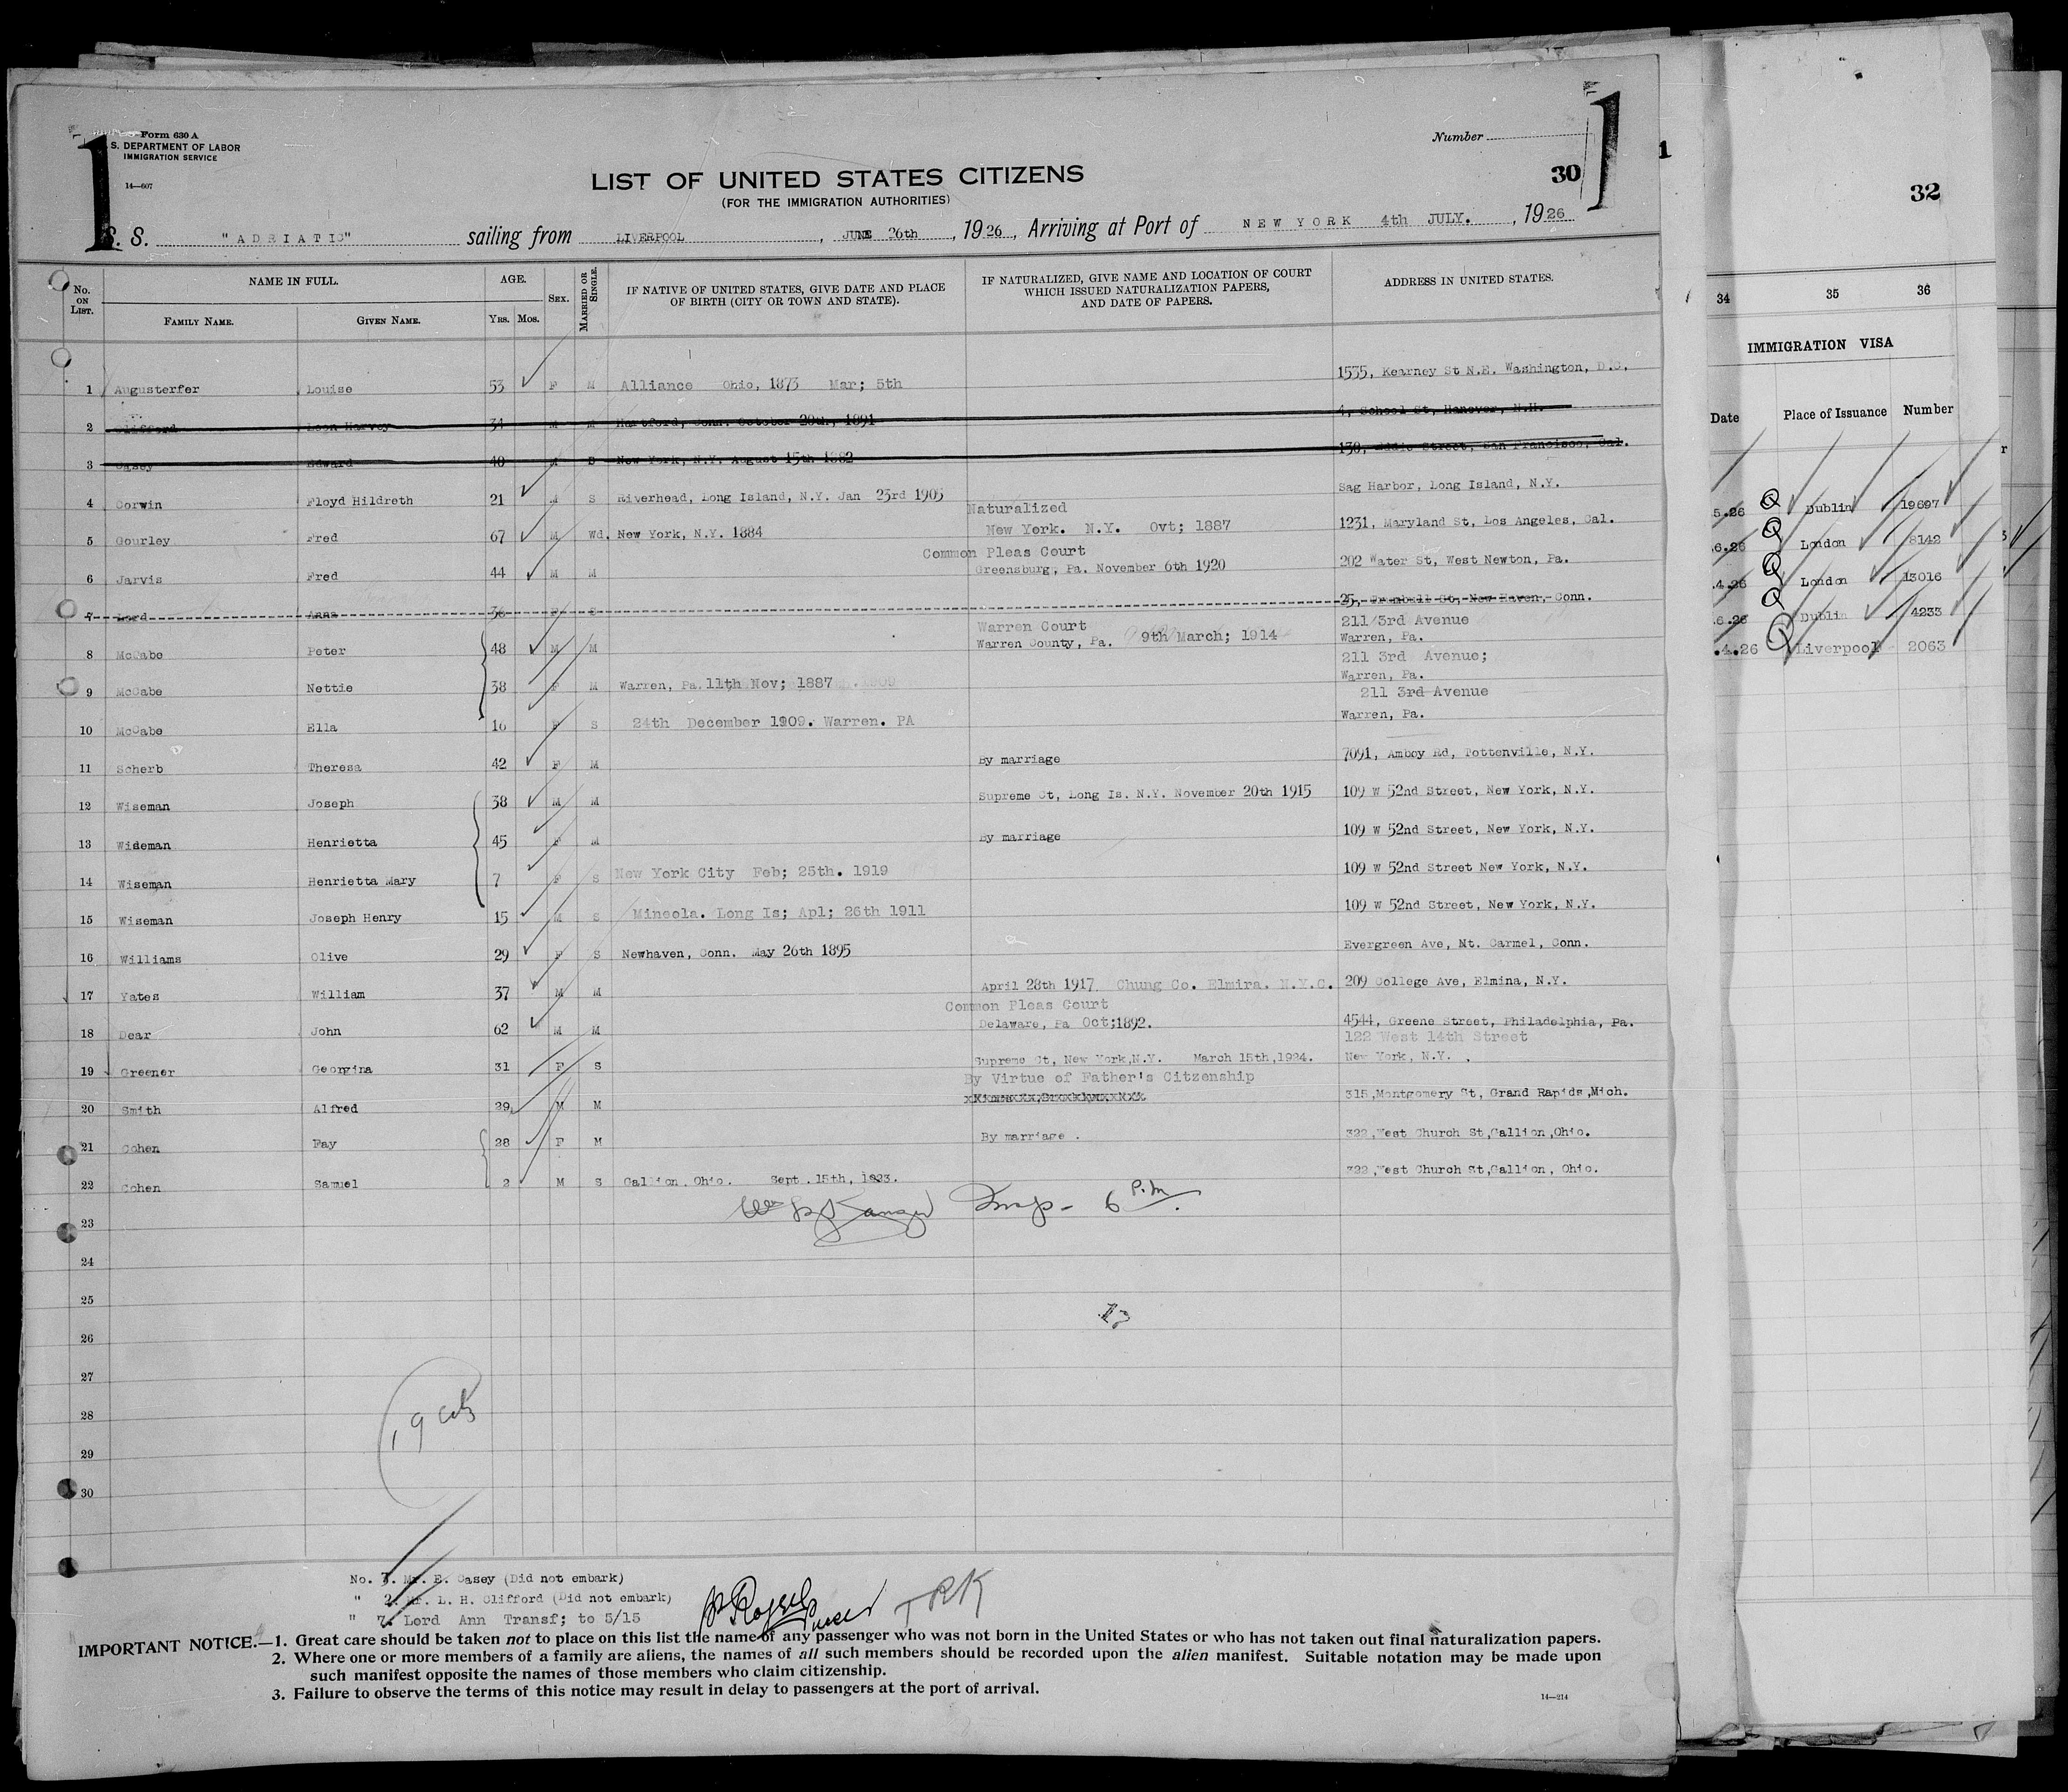 Form 630 A
S. DEPARTMENT OF LABOR
IMMIGRATION SERVICE
14—607
1
1
Number
30
LIST OF UNITED STATES CITIZENS
(FOR THE IMMIGRATION AUTHORITIES)
S. S. "ADRIATIC" sailing from LIVERPOOL, JUNE 26th, 1926, Arriving at Port of NEW YORK 4th JULY., 1926
No. ON LIST.
NAME IN FULL.
FAMILY NAME.
GIVEN NAME.
AGE.
YRS. MOS.
SEX.
MARRIED OR SINGLE.
IF NATIVE OF UNITED STATES, GIVE DATE AND PLACE OF BIRTH (CITY OR TOWN AND STATE).
IF NATURALIZED, GIVE NAME AND LOCATION OF COURT WHICH ISSUED NATURALIZATION PAPERS, AND DATE OF PAPERS.
ADDRESS IN UNITED STATES.
1 Augusterfer Louise 53 F M Alliance Ohio, 1873 Mar; 5th 1535, Kearney St N.E. Washington, D.C.
2 Clifford Leon Harvey 34 M M Hartford, Conn. October 20th, 1891 4, School St, Hanover, N.H.
3 Casey Edward 40 M S New York, N.Y. August 15th 1882 130, Eddie Street, San Francisco, Cal.
4 Corwin Floyd Hildreth 21 M S Riverhead, Long Island, N.Y. Jan 23rd 1905 Sag Harbor, Long Island, N.Y.
Naturalized
5 Gourley Fred 67 M Wd. New York, N.Y. 1884 New York. N.Y. Ovt; 1887 1231, Maryland St, Los Angeles, Cal.
Common Pleas Court
6 Jarvis Fred 44 M M Greensburg, Pa. November 6th 1920 202 Water St, West Newton, Pa.
7 Lord Anna 36 F S 25, Trumbull St, New Haven, Conn.
Warren Court 211 3rd Avenue
8 McCabe Peter 48 M M Warren County, Pa. 9th March; 1914 Warren, Pa.
211 3rd Avenue;
9 McCabe Nettie 38 F M Warren, Pa. 11th Nov; 1887 Warren, Pa.
211 3rd Avenue
10 McCabe Ella 16 F S 24th December 1909. Warren. PA Warren, Pa.
11 Scherb Theresa 42 F M By marriage 7091, Amboy Rd, Tottenville, N.Y.
12 Wiseman Joseph 38 M M Supreme Ct, Long Is. N.Y. November 20th 1915 109 W 52nd Street, New York, N.Y.
13 Wiseman Henrietta 45 F M By marriage 109 W 52nd Street, New York, N.Y.
14 Wiseman Henrietta Mary 7 F S New York City Feb; 25th. 1919 109 W 52nd Street New York, N.Y.
15 Wiseman Joseph Henry 15 M S Mineola. Long Is; Apl; 26th 1911 109 W 52nd Street, New York, N.Y.
16 Williams Olive 29 F S Newhaven, Conn. May 26th 1895 Evergreen Ave, Mt. Carmel, Conn.
17 Yates William 37 M M April 28th 1917. Chung Co. Elmira. N.Y.C. 209 College Ave, Elmina, N.Y.
Common Pleas Court
18 Dear John 62 M M Delaware, Pa Oct;1892. 4544, Greene Street, Philadelphia, Pa.
122 West 14th Street
19 Greener Georgina 31 F S Supreme Ct, New York,N.Y. March 15th,1924. New York, N.Y.
By Virtue of Father's Citzenship
20 Smith Alfred 29 M M 315,Montgomery St, Grand Rapids,Mich.
21 Cohen Fay 28 F M By marriage . 322,West Church St,Gallion,Ohio.
22 Cohen Samuel 2 M S Gallion. Ohio. Sept. 15th, 1923. 322,West Church St,Gallion, Ohio.
Insp- 6 P.M.
23
24
25
26
27
28
29
30
No. 3. Mr. E. Casey (Did not embark)
" 2. Mr. L. H. Clifford (Did not embark)
" 7. Lord Ann Transf; to 5/15
Purser
IMPORTANT NOTICE.—1. Great care should be taken not to place on this list the name of any passenger who was not born in the United States or who has not taken out final naturalization papers.
2. Where one or more members of a family are aliens, the names of all such members should be recorded upon the alien manifest. Suitable notation may be made upon
such manifest opposite the names of those members who claim citizenship.
3. Failure to observe the terms of this notice may result in delay to passengers at the port of arrival.
14—214
1
32
34 35 36
IMMIGRATION VISA
Date Place of Issuance Number
5.26 Dublin 19697
.6.26 London 8142
.4.26 London 13016
.6.26 Dublin 4235
.4.26 Liverpool 2063